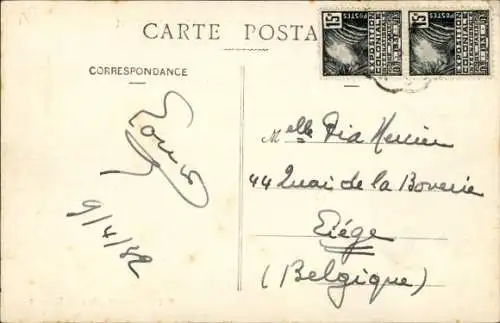 CARTE POSTA
CORRESPONDANCE
Melle Dia Hercier
44 Quai de la Boverie
Liége
(Belgique)
9/4/32
15c
POSTES
15c
POSTES